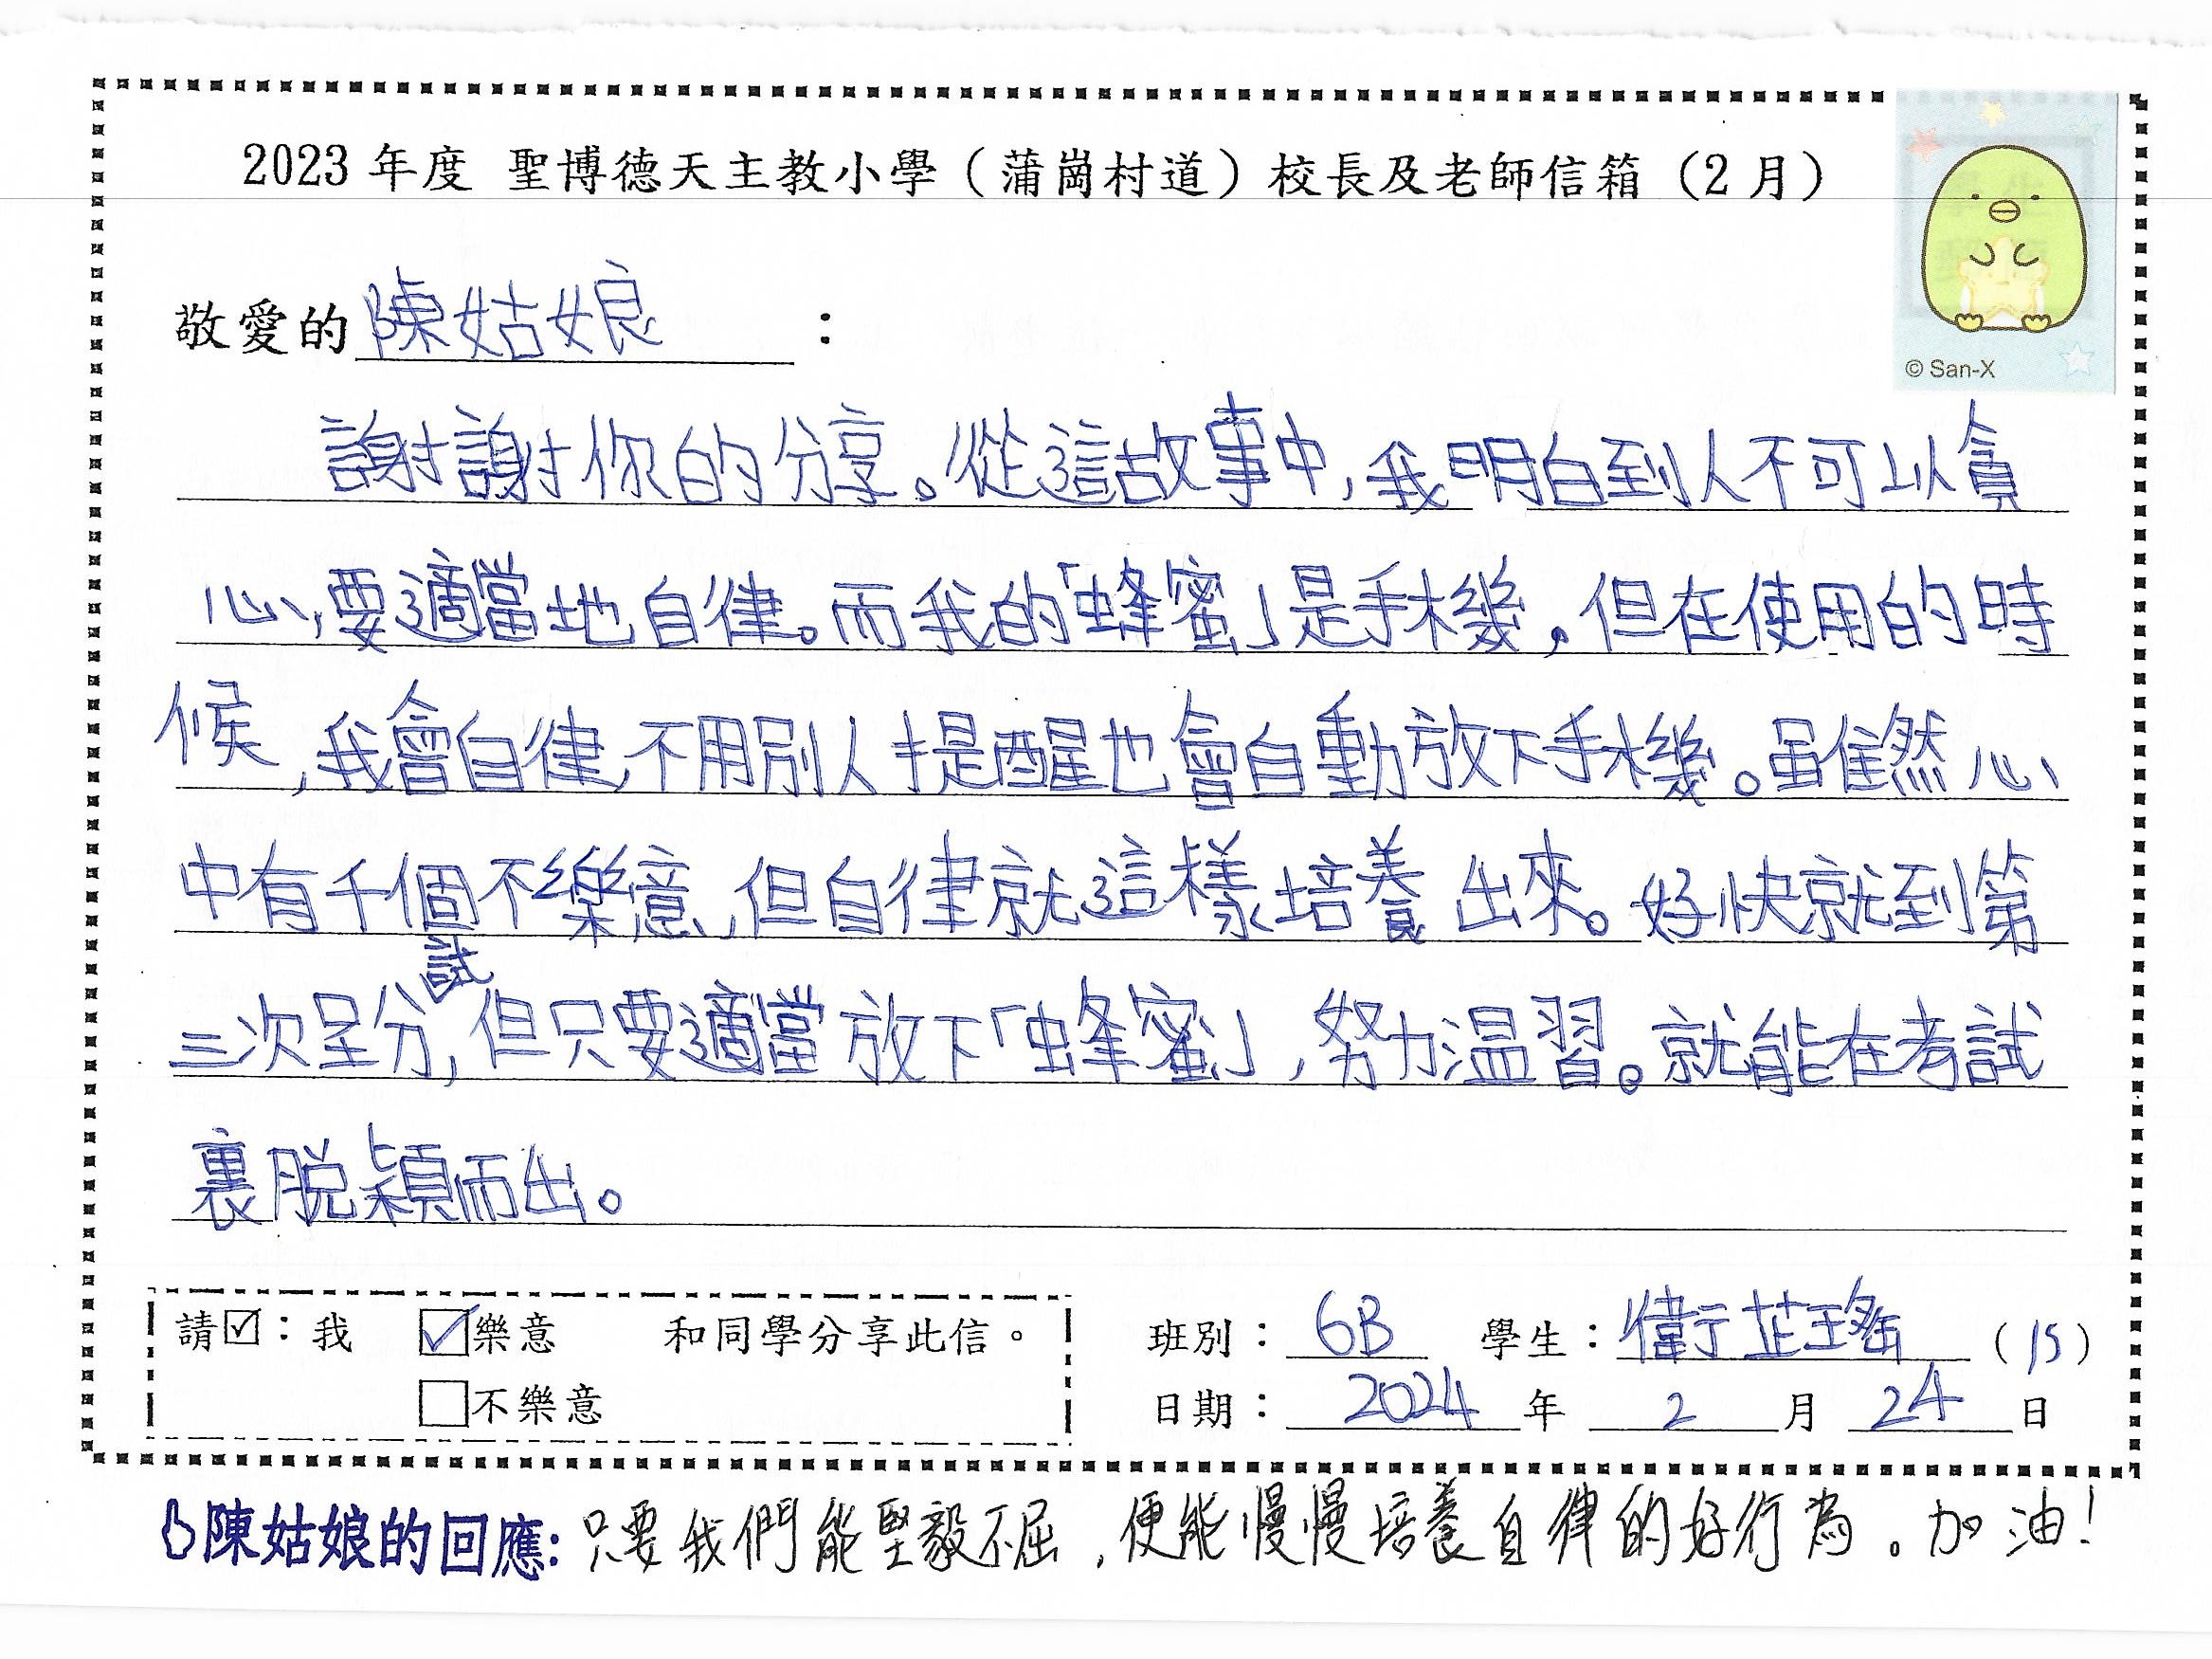 2023 年度 聖博德天主教小學（蒲崗村道）校長及老師信箱（2 月）
© San-X
敬愛的陳姑娘：
謝謝你的分享。從這故事中，我明白到人不可以貪
心，要適當地自律。而我的「蜂蜜」是手機，但在使用的時
候，我會自律，不用別人提醒也會自動放下手機。雖然心
中有千個不樂意，但自律就這樣培養出來。好快就到第
三次呈分試，但只要適當放下「蜂蜜」，努力温習。就能在考試
裏脱穎而出。
請☑：我 ☑樂意 和同學分享此信。 班別：6B 學生：衞芷瑤（15）
☐不樂意 日期：2024 年 2 月 24 日
陳姑娘的回應：只要我們能堅毅不屈，便能慢慢培養自律的好行為。加油！